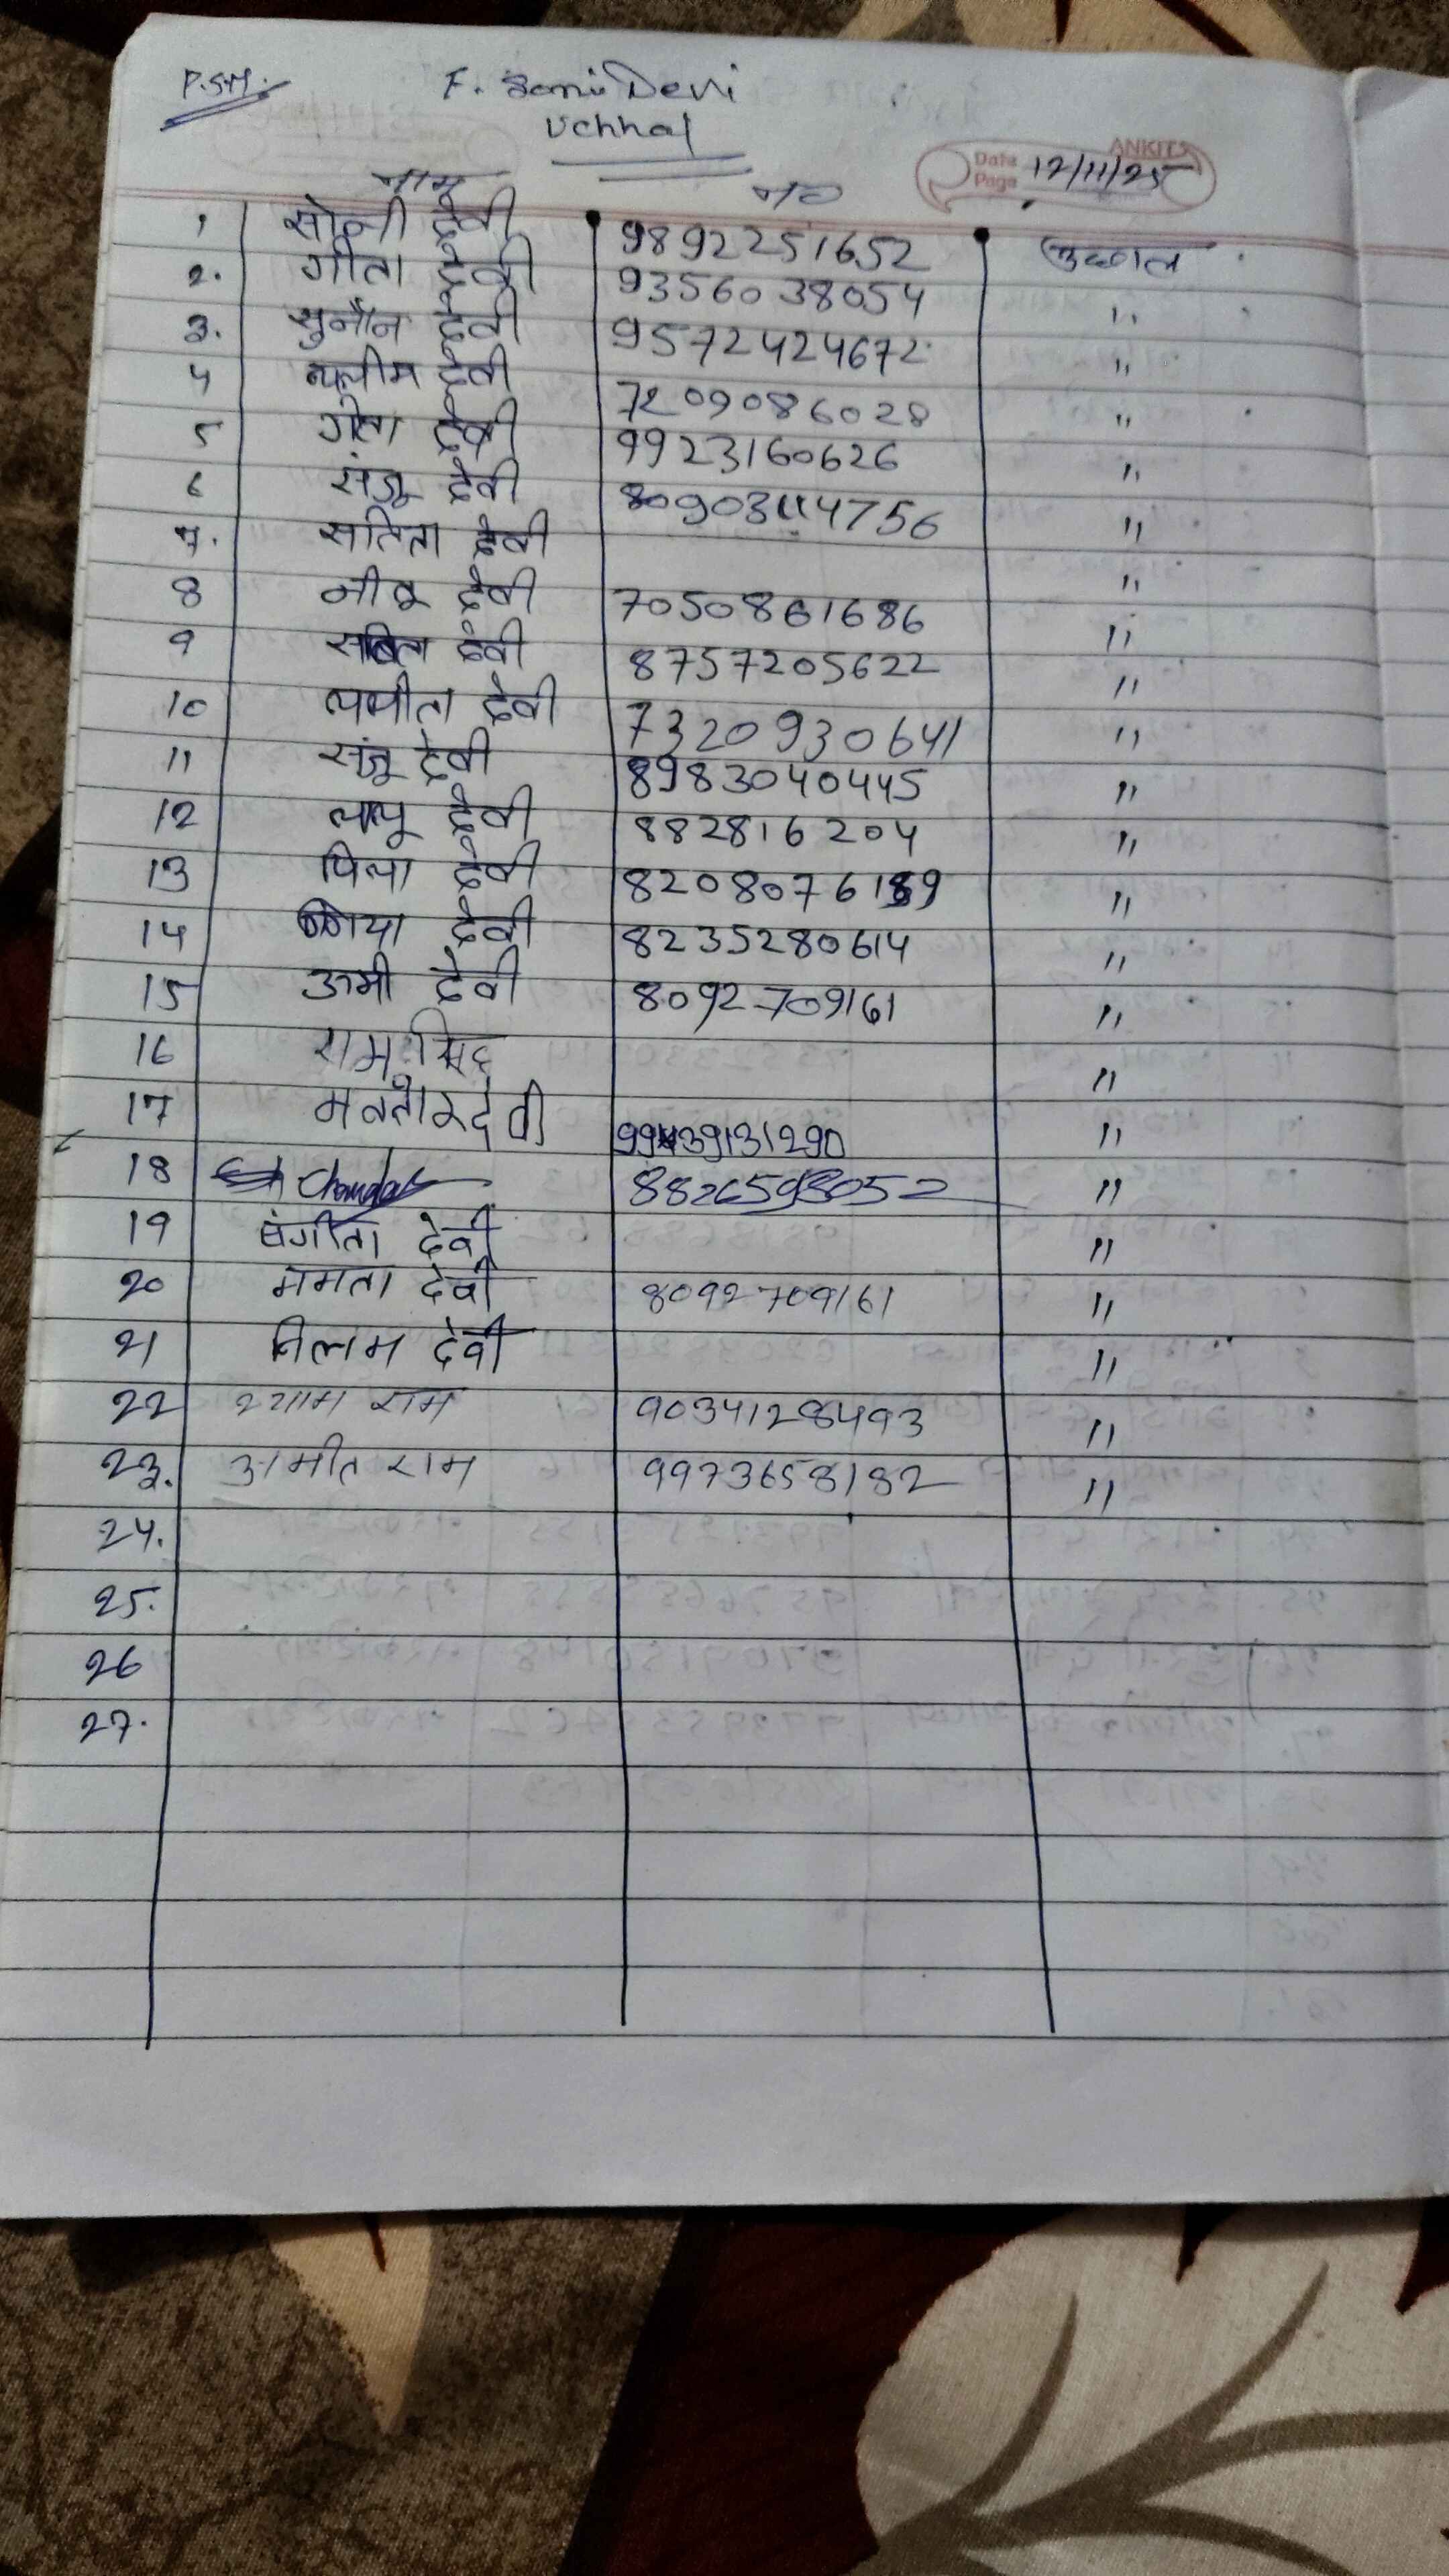 P.S.M.
F. Soni Devi
Uchhal
ANKIT
Date 12/11/25
Page
नाम न०
1 सोनी देवी 9892251652 उछाल
2. गीता देवी 9356038054 "
3. सुनैन देवी 9572424672 "
4 देवी 7209086028 "
5 गीता देवी 9923160626 "
6 संजू देवी "
7. सतिता देवी "
8 नीतू देवी 7050861686 "
9 सबिता देवी 8757205622 "
10 देवी 7320930641 "
11 संजू देवी 8983040445 "
12 देवी 882816204 "
13 देवी "
14 देवी 8235280614 "
15 उर्मी देवी 8092709161 "
16 राम सिह "
17 देवी "
18 8826598052 "
19 संगीता देवी "
20 ममता देवी 8092709161 "
21 निलम देवी "
22 श्याम राम 9034128493 "
23. अमीत राम 9973658182 "
24.
25.
26
27.